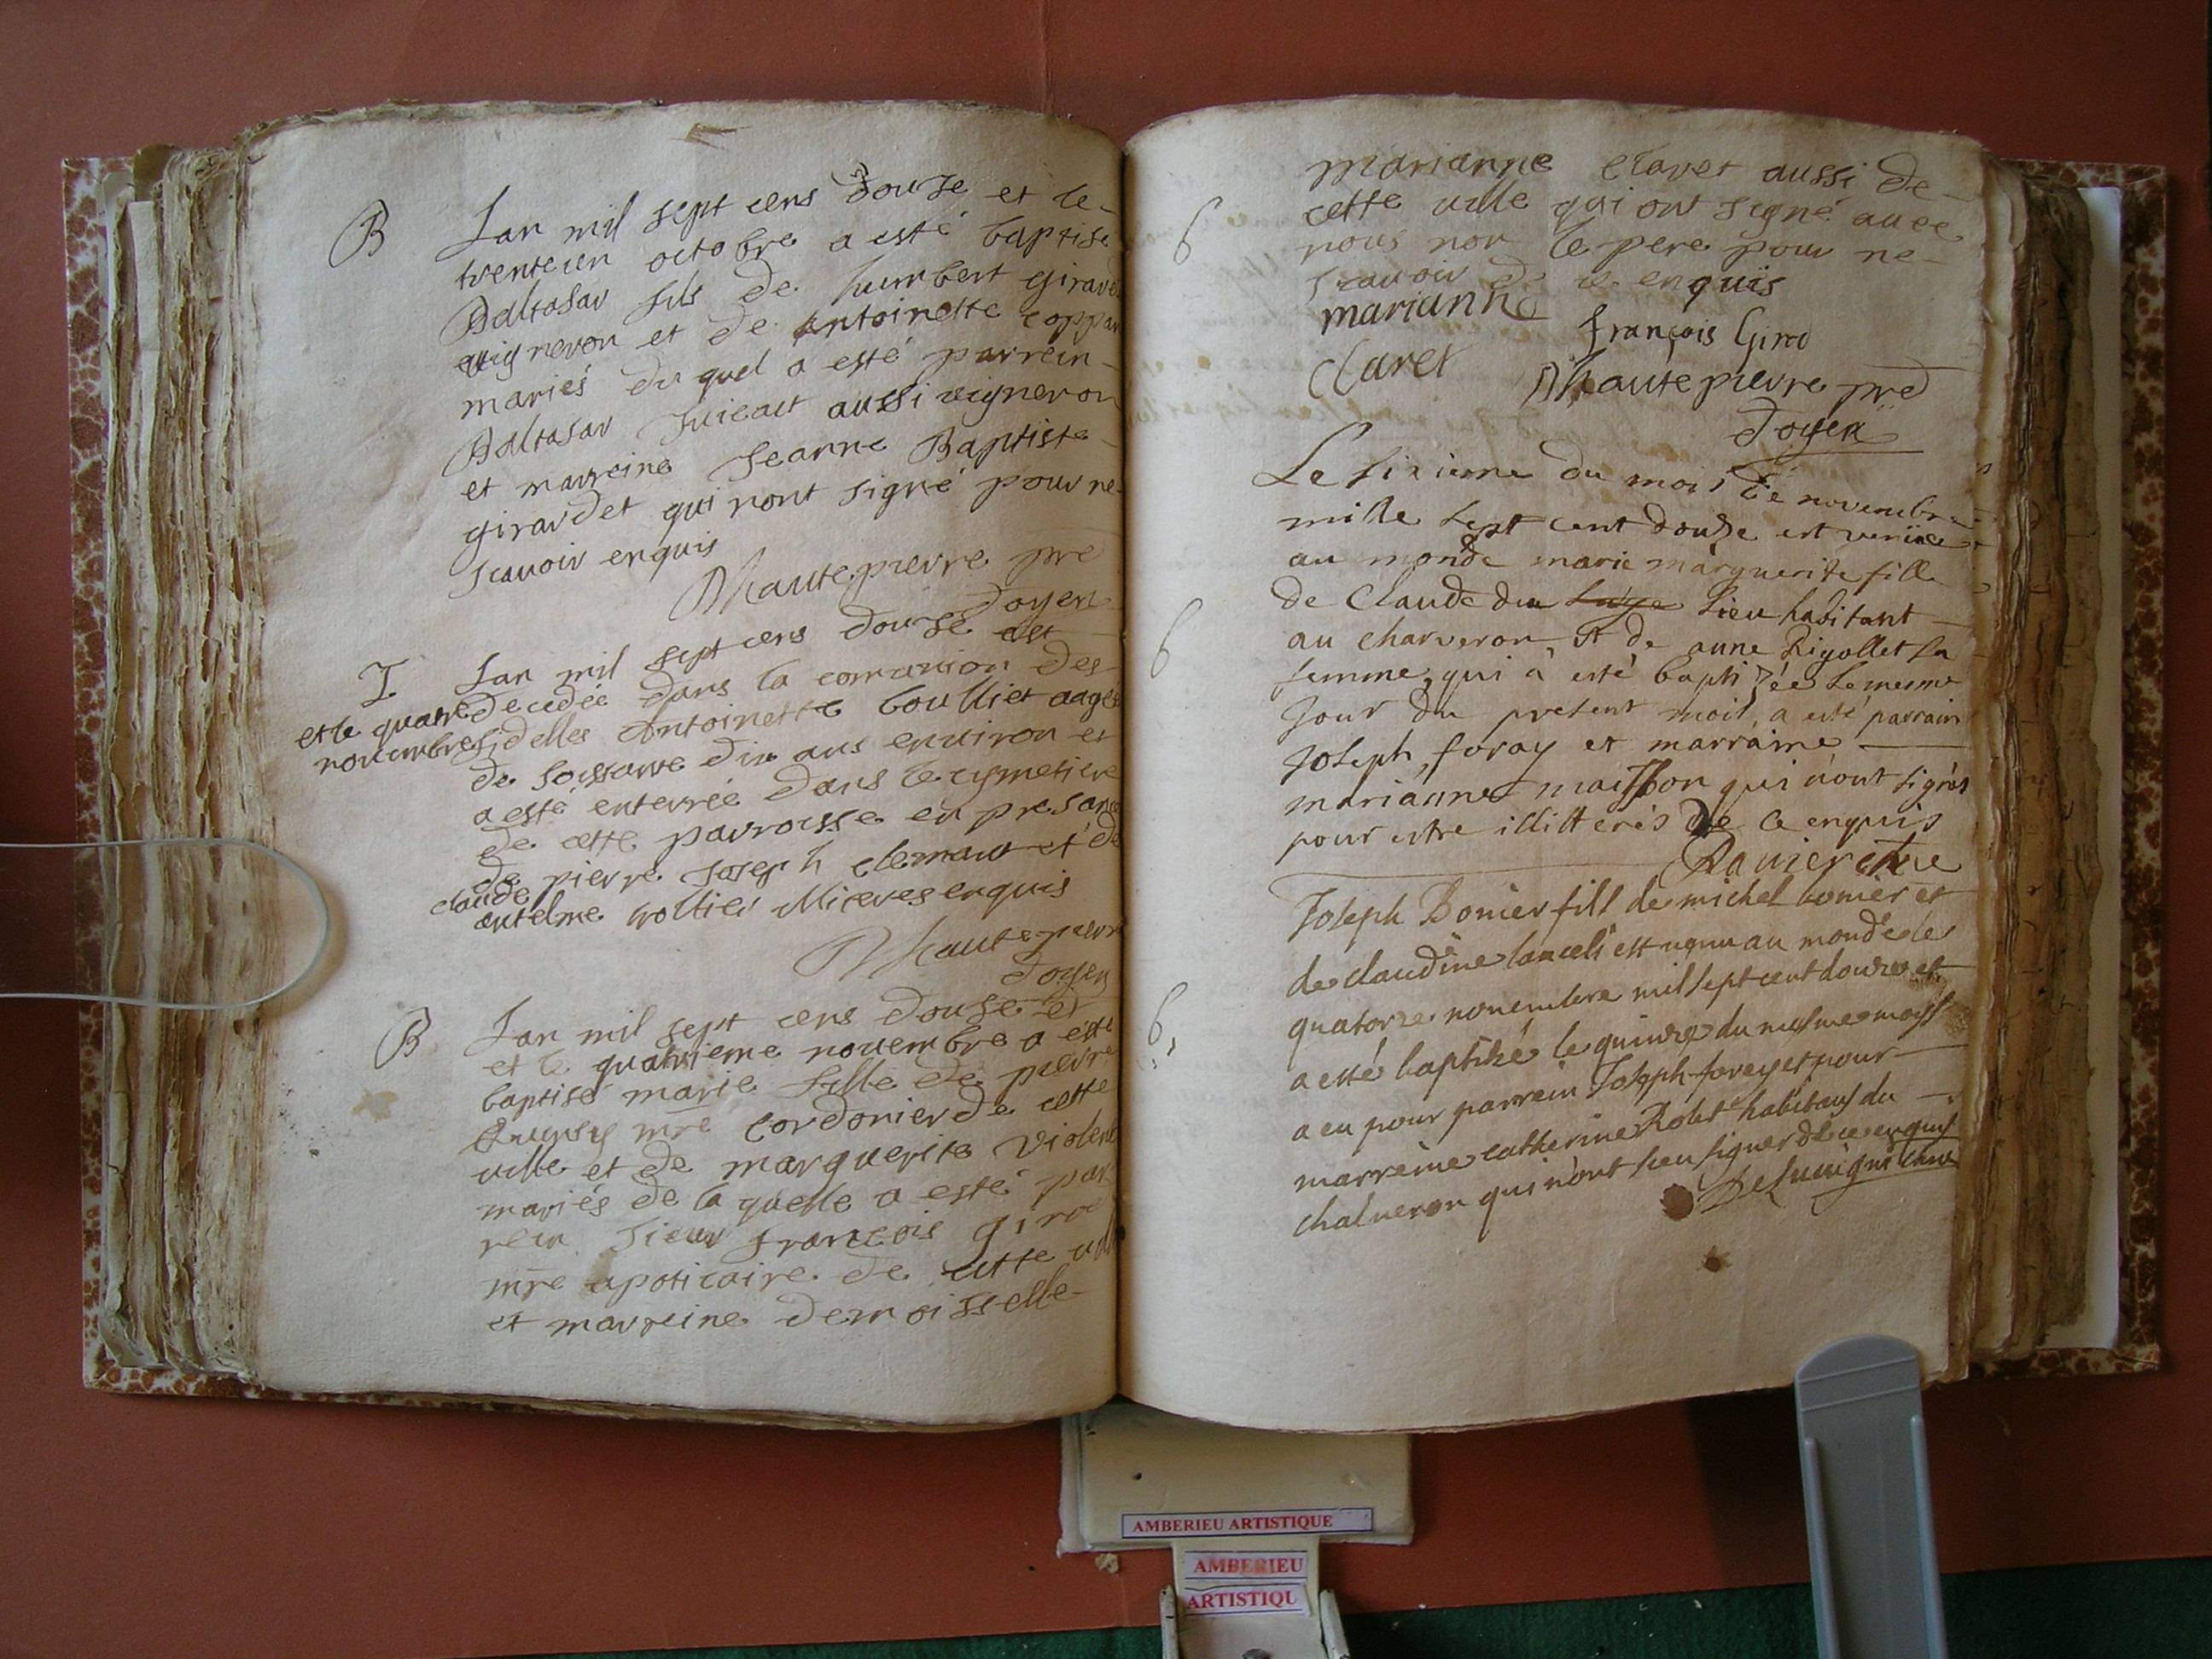 B
Lan mil sept cens douse et le
trenteun octobre a esté baptisé
Baltasar fils de humbert girard
vigneron et de Antoinette coppa
mariés du quel a esté parrein
Baltasar Juieact aussi vigneron
et marreine Jeanne Baptiste
girardet qui nont signé pour ne
scavoir enquis
Dhautepierre pre
doyen
Lan mil sept cens douse est
et le quatre decedée dans la comunion des
novembre fidelles Antoinette boulliet aagée
de soissante dix ans environ et
a esté enterrée dans le cymetiere
de cette parroisse en presance
de pierre Joseph clemant et de
claude
antelme trollier Miceres enquis
Dhautepierre
doyen
B
Lan mil sept cens douse et
et le quatrieme novembre a esté
baptisé marie fille de pierre
mre cordonier de cette
ville et de marguerite violene
mariés de laquelle a esté par
rein sieur francois giro
mre apoticaire de cette vill
et marreine demoisselle
marianne claret aussi de
cette ville qui ont signé avec
nous non le pere pour ne
scavoir de ce enquis
marianne
françois Girod
Claret
Dhautepierre pre
doyen
Le sixieme du mois de novembre
mille sept cent douse est veniie
au monde marie marguerite fille
de Claude du lieu habitant
au charveron et de anne Rigollet sa
femme, qui à esté baptizée le mesme
jour du present mois, a esté parrain
Joseph foray et marraine
marianne maisson qui n'ont signés
pour estre illitterés de ce enquis
Ravier chne
Joseph Bonier fill de michel bonier et
de claudine lanceli est venu au monde le
quatorze novembre mil sept cent douze et
a esté baptisé le quinze du mesme moiss
a eu pour parrein Joseph forey et pour
marreine catherine Robet habitans du
chalveron qui n'ont sceu signer de ce enquis
AMBERIEU ARTISTIQUE
AMBERIEU
ARTISTIQU